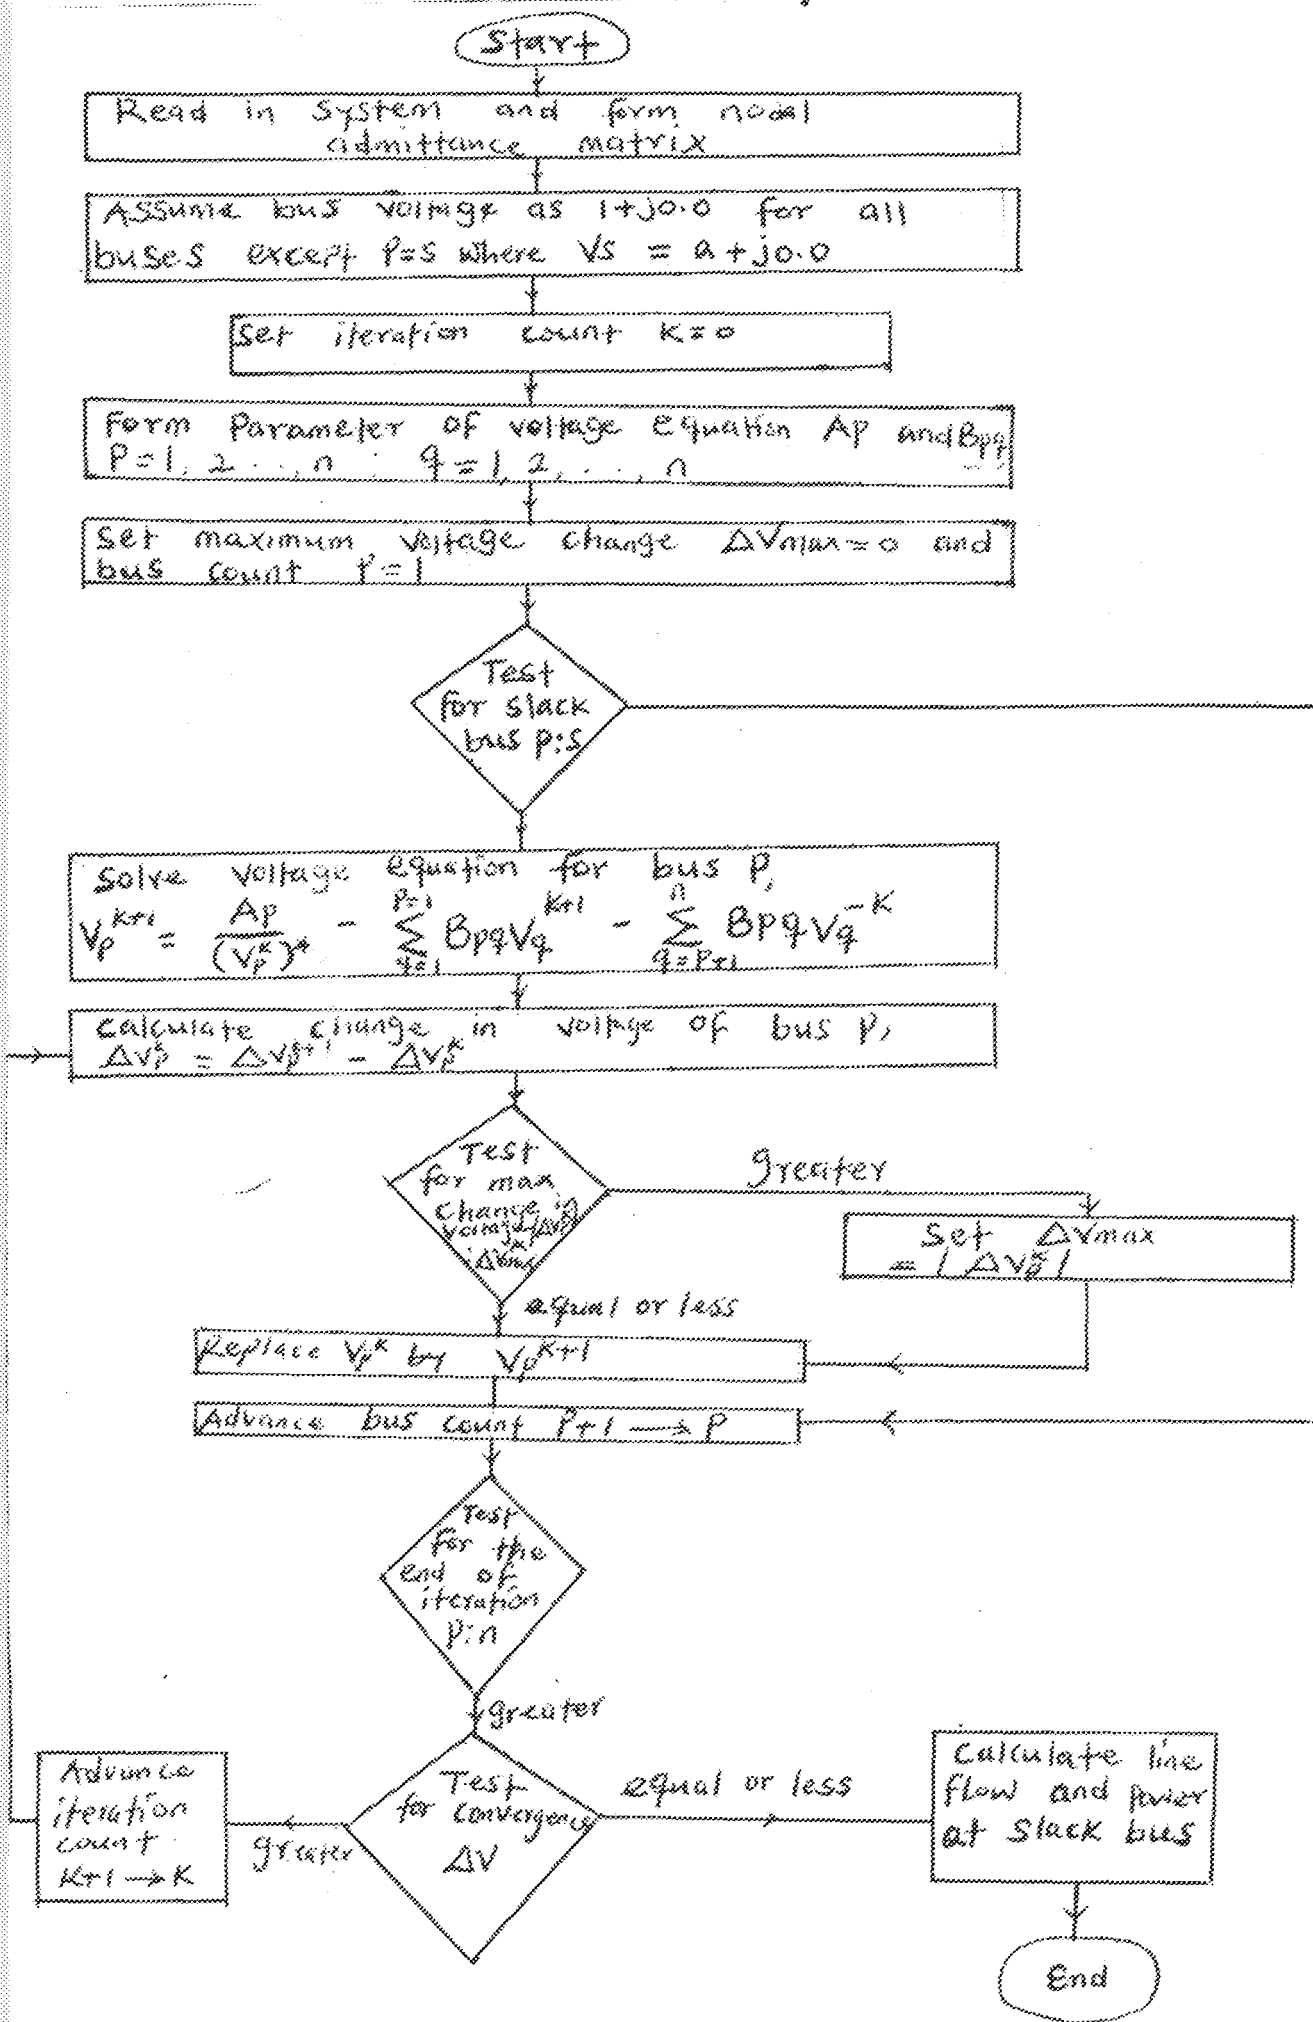 Start
Read in system and form nodal
admittance matrix
Assume bus voltage as 1+j0.0 for all
buses except P=S where Vs = a+j0.0
Set iteration count K=0
Form Parameter of voltage equation Ap and Bpq
P=1, 2 ..., n ; q=1, 2, ..., n
Set maximum voltage change ΔVmax=0 and
bus count P=1
Test
for slack
bus P:S
Solve voltage equation for bus P,
Vp^K+1 = Ap/(Vp^K)* - Σ(q=1 to P=1) Bpq Vq^K+1 - Σ(q=P+1 to n) Bpq Vq^-K
Calculate change in voltage of bus P,
ΔVp^K = ΔVp^K+1 - ΔVp^K
Test
for max
change in
voltage |ΔVp^K|
:ΔVmax
greater
Set ΔVmax
= |ΔVp^K|
equal or less
Replace Vp^K by Vp^K+1
Advance bus count P+1 → P
Test
for the
end of
iteration
P:n
greater
Test
for convergence
ΔV
equal or less
Calculate line
flow and power
at slack bus
greater
Advance
iteration
count
K+1 → K
End